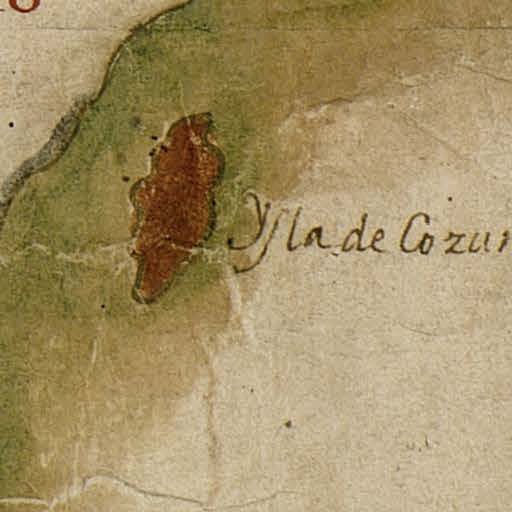 Ysla de Cozu